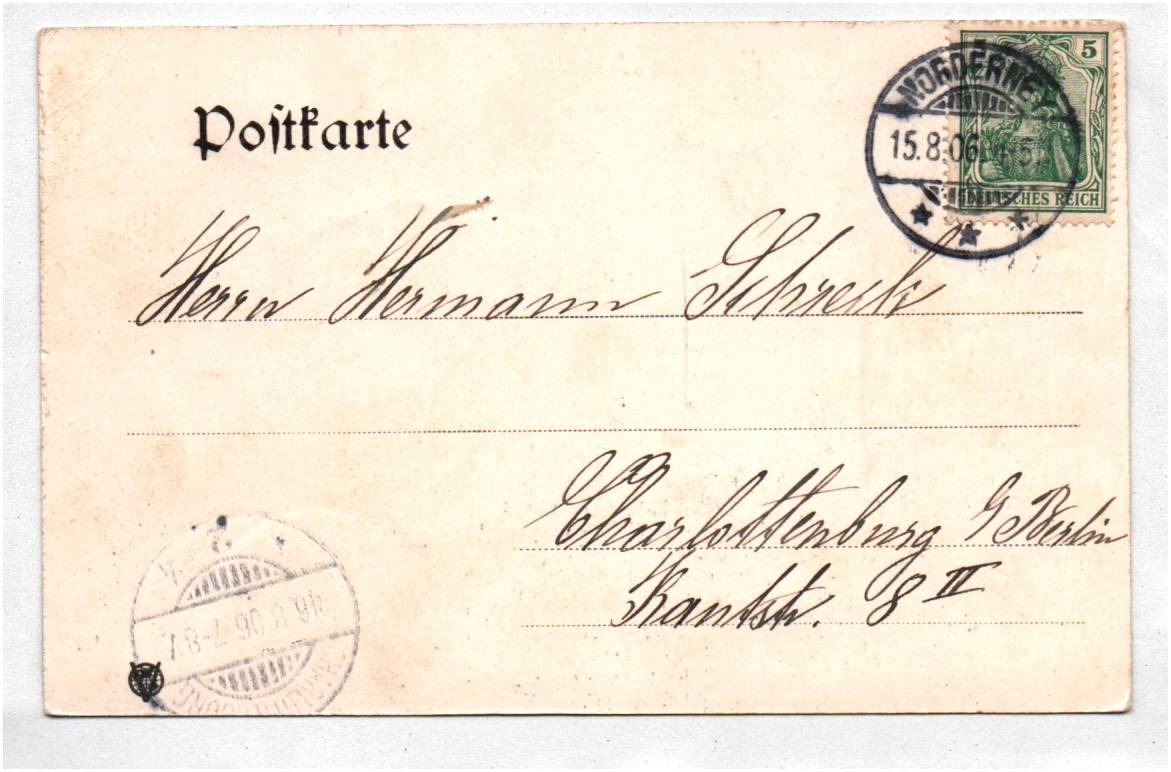 Postkarte
5
NORDERNEY
15.8.06
DEUTSCHES REICH
Herrn Hermann Schreck
Charlottenburg b/ Berlin
Kantstr. 8 II
16.8.06 7-8 V.